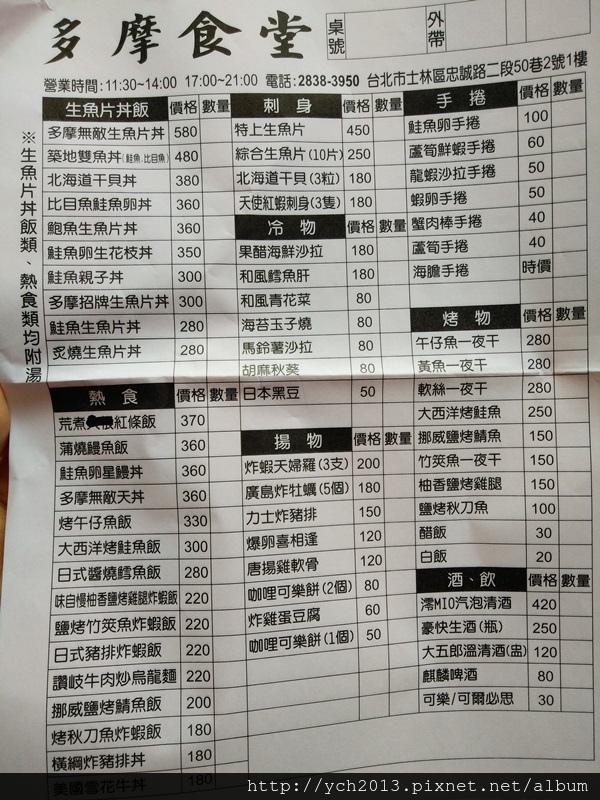 多摩食堂
桌號
外帶
營業時間:11:30~14:00 17:00~21:00 電話:2838-3950 台北市士林區忠誠路二段50巷2號1樓
※生魚片丼飯類、熱食類均附湯
生魚片丼飯 價格 數量
多摩無敵生魚片丼 580
築地雙魚丼(鮭魚.比目魚) 480
北海道干貝丼 380
比目魚鮭魚卵丼 360
鮑魚生魚片丼 360
鮭魚卵生花枝丼 350
鮭魚親子丼 300
多摩招牌生魚片丼 300
鮭魚生魚片丼 280
炙燒生魚片丼 280
熱食 價格 數量
荒煮 紅條飯 370
蒲燒鰻魚飯 360
鮭魚卵星鰻丼 360
多摩無敵天丼 360
烤午仔魚飯 330
大西洋烤鮭魚飯 300
日式醬燒鱈魚飯 280
味自慢柚香鹽烤雞腿炸蝦飯 220
鹽烤竹筴魚炸蝦飯 220
日式豬排炸蝦飯 220
讚岐牛肉炒烏龍麵 220
挪威鹽烤鯖魚飯 200
烤秋刀魚炸蝦飯 180
橫綱炸豬排丼 180
美國雪花牛丼 180
刺身 價格 數量
特上生魚片 450
綜合生魚片(10片) 250
北海道干貝(3粒) 180
天使紅蝦刺身(3隻) 180
冷物 價格 數量
果醋海鮮沙拉 180
和風鱈魚肝 180
和風青花菜 80
海苔玉子燒 80
馬鈴薯沙拉 80
胡麻秋葵 80
日本黑豆 50
揚物 價格 數量
炸蝦天婦羅(3支) 200
廣島炸牡蠣(5個) 180
力士炸豬排 150
爆卵喜相逢 120
唐揚雞軟骨 120
咖哩可樂餅(2個) 80
炸雞蛋豆腐 60
咖哩可樂餅(1個) 50
手捲 價格 數量
鮭魚卵手捲 100
蘆筍鮮蝦手捲 60
龍蝦沙拉手捲 50
蝦卵手捲 50
蟹肉棒手捲 40
蘆筍手捲 40
海膽手捲 時價
烤物 價格 數量
午仔魚一夜干 280
黃魚一夜干 280
軟絲一夜干 280
大西洋烤鮭魚 250
挪威鹽烤鯖魚 150
竹筴魚一夜干 150
柚香鹽烤雞腿 150
鹽烤秋刀魚 100
醋飯 30
白飯 20
酒、飲 價格 數量
澪MIO汽泡清酒 420
豪快生酒(瓶) 250
大五郎溫清酒(盅) 120
麒麟啤酒 80
可樂/可爾必思 30
http://ych2013.pixnet.net/album